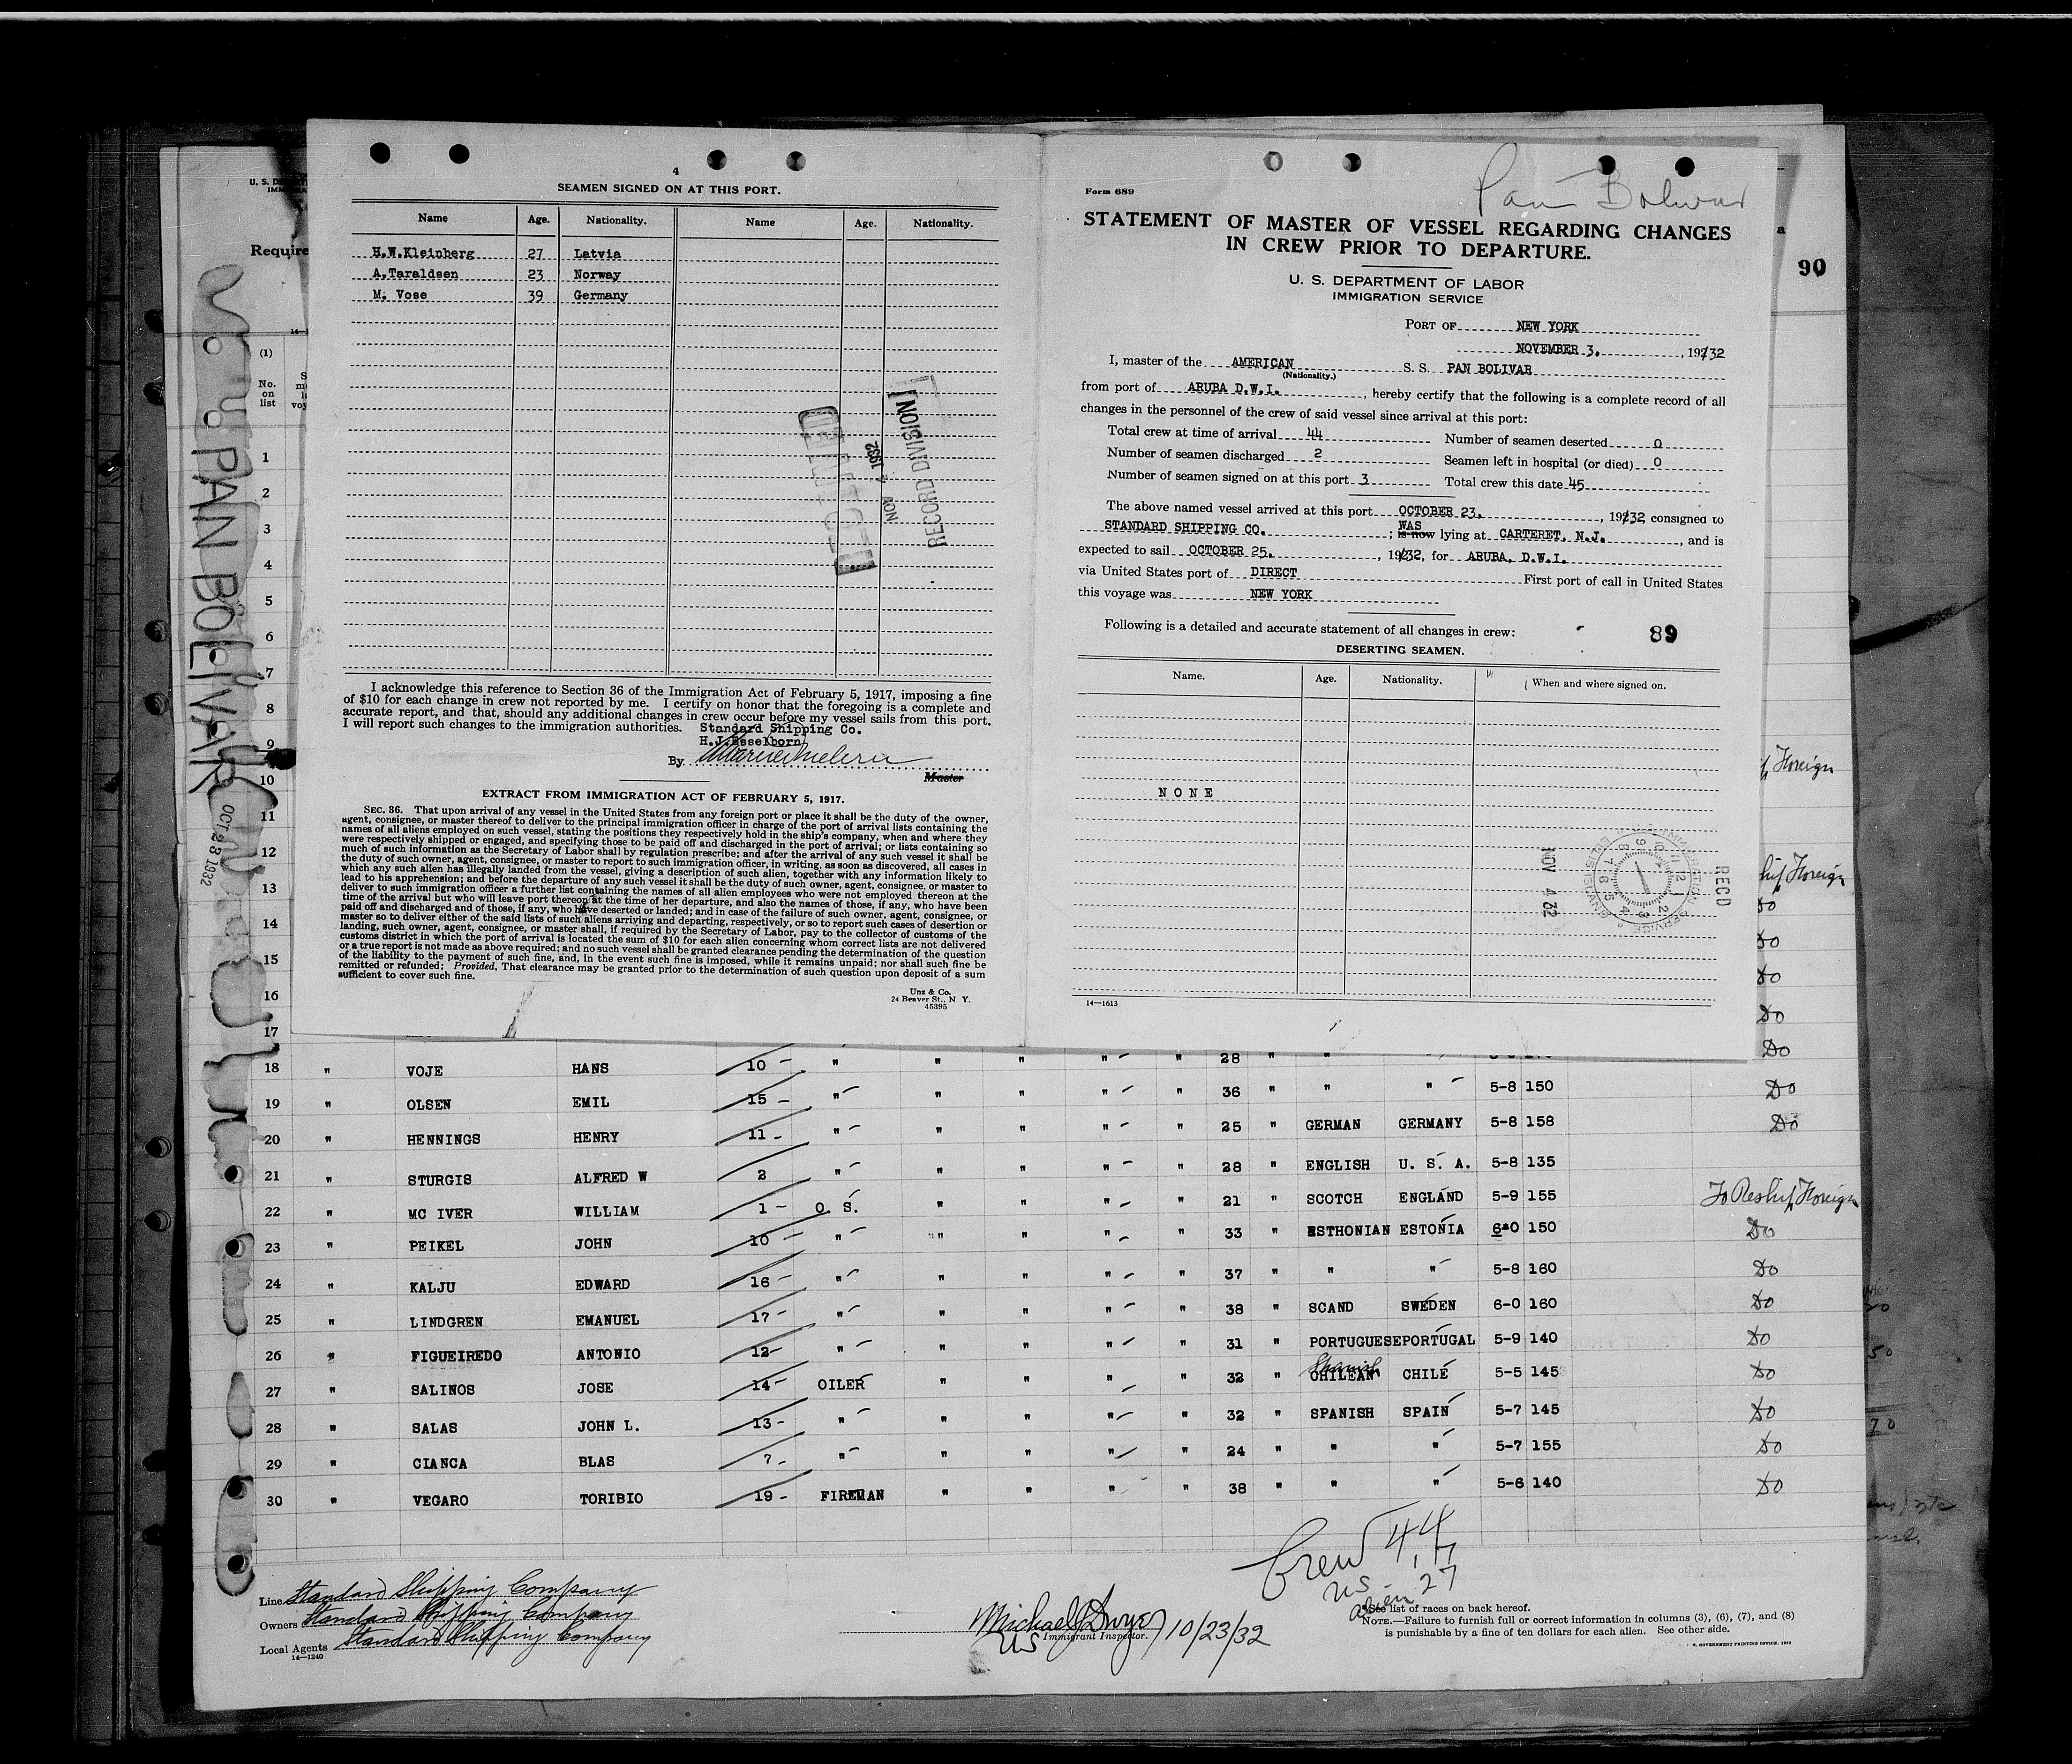 4
SEAMEN SIGNED ON AT THIS PORT.
Name Age. Nationality. Name Age. Nationality.
H.W.Kleinberg 27 Latvia
A.Taraldsen 23 Norway
M. Vose 39 Germany
RECORD DIVISION
NOV 4 1932
I acknowledge this reference to Section 36 of the Immigration Act of February 5, 1917, imposing a fine
of $10 for each change in crew not reported by me. I certify on honor that the foregoing is a complete and
accurate report, and that, should any additional changes in crew occur before my vessel sails from this port,
I will report such changes to the immigration authorities. Standard Shipping Co.
H.J.Esselborn
By
Master
EXTRACT FROM IMMIGRATION ACT OF FEBRUARY 5, 1917.
SEC. 36. That upon arrival of any vessel in the United States from any foreign port or place it shall be the duty of the owner,
agent, consignee, or master thereof to deliver to the principal immigration officer in charge of the port of arrival lists containing the
names of all aliens employed on such vessel, stating the positions they respectively hold in the ship's company, when and where they
were respectively shipped or engaged, and specifying those to be paid off and discharged in the port of arrival; or lists containing so
much of such information as the Secretary of Labor shall by regulation prescribe; and after the arrival of any such vessel it shall be
the duty of such owner, agent, consignee, or master to report to such immigration officer, in writing, as soon as discovered, all cases in
which any such alien has illegally landed from the vessel, giving a description of such alien, together with any information likely to
lead to his apprehension; and before the departure of any such vessel it shall be the duty of such owner, agent, consignee, or master to
deliver to such immigration officer a further list containing the names of all alien employees who were not employed thereon at the
time of the arrival but who will leave port thereon at the time of her departure, and also the names of those, if any, who have been
paid off and discharged and of those, if any, who have deserted or landed; and in case of the failure of such owner, agent, consignee, or
master so to deliver either of the said lists of such aliens arriving and departing, respectively, or so to report such cases of desertion or
landing, such owner, agent, consignee, or master shall, if required by the Secretary of Labor, pay to the collector of customs of the
customs district in which the port of arrival is located the sum of $10 for each alien concerning whom correct lists are not delivered
or a true report is not made as above required; and no such vessel shall be granted clearance pending the determination of the question
of the liability to the payment of such fine, and, in the event such fine is imposed, while it remains unpaid; nor shall such fine be
remitted or refunded; Provided, That clearance may be granted prior to the determination of such question upon deposit of a sum
sufficient to cover such fine.
Unz & Co.
24 Beaver St., N Y.
45395
Form 689
Pan Bolivar
STATEMENT OF MASTER OF VESSEL REGARDING CHANGES
IN CREW PRIOR TO DEPARTURE.
U. S. DEPARTMENT OF LABOR
IMMIGRATION SERVICE
PORT OF NEW YORK
NOVEMBER 3. , 1932
I, master of the AMERICAN S. S. PAN BOLIVAR
(Nationality.)
from port of ARUBA D.W.I. , hereby certify that the following is a complete record of all
changes in the personnel of the crew of said vessel since arrival at this port:
Total crew at time of arrival 44 Number of seamen deserted 0
Number of seamen discharged 2 Seamen left in hospital (or died) 0
Number of seamen signed on at this port 3 Total crew this date 45
The above named vessel arrived at this port OCTOBER 23. , 1932, consigned to
STANDARD SHIPPING CO. ; WAS is now lying at CARTERET, N.J. , and is
expected to sail OCTOBER 25. , 1932, for ARUBA, D.W.I.
via United States port of DIRECT First port of call in United States
this voyage was NEW YORK
Following is a detailed and accurate statement of all changes in crew:
89
DESERTING SEAMEN.
Name. Age. Nationality. When and where signed on.
NONE
NOV 4 32
RECD
14—1613
90
Require
(1)
No.
on
list
PAN BOLIVAR
OCT 23 1932
1
2
3
4
5
6
7
8
9
10 Foreign
11
12
13 Foreign
Do
14 Do
15 Do
16 Do
17 Do
18 " VOJE HANS 10 " " " " " 28 " "
19 " OLSEN EMIL 15 " " " " " 36 " " " 5-8 150 Do
20 " HENNINGS HENRY 11 " " " " " 25 " GERMAN GERMANY 5-8 158 Do
21 " STURGIS ALFRED W 2 " " " " " 28 " ENGLISH U. S. A. 5-8 135
22 " MC IVER WILLIAM 1 O. S. " " " " 21 " SCOTCH ENGLAND 5-9 155 To Reship Foreign
23 " PEIKEL JOHN 10 " " " " " 33 " ESTHONIAN ESTONIA 6-0 150 Do
24 " KALJU EDWARD 16 " " " " " 37 " " " 5-8 160 Do
25 " LINDGREN EMANUEL 17 " " " " " 38 " SCAND SWEDEN 6-0 160 Do
26 " FIGUEIREDO ANTONIO 12 " " " " " 31 " PORTUGUESE PORTUGAL 5-9 140 Do
27 " SALINOS JOSE 14 OILER " " " " 32 " Spanish CHILEAN CHILE 5-5 145 Do
28 " SALAS JOHN L. 13 " " " " " 32 " SPANISH SPAIN 5-7 145 Do
29 " CIANCA BLAS 7 " " " " " 24 " " " 5-7 155 Do
30 " VEGARO TORIBIO 19 FIREMAN " " " " 38 " " " 5-6 140 Do
Crew 44
US 17
alien 27
Line Standard Shipping Company
Owners Standard Shipping Company
Local Agents Standard Shipping Company
14—1240
Michael J Dwyer 10/23/32
US Immigrant Inspector.
See list of races on back hereof.
NOTE.—Failure to furnish full or correct information in columns (3), (6), (7), and (8)
is punishable by a fine of ten dollars for each alien. See other side.